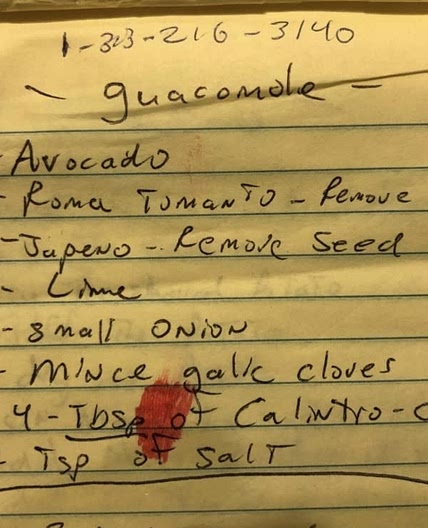 1-313-216-3140
- guacomole -
- Avocado
- Roma Tomanto - Remove
- Japeno - Remove Seed
- Lime
- small onion
- Mince galic cloves
4 - Tbsp of Calintro -
- Tsp of Salt